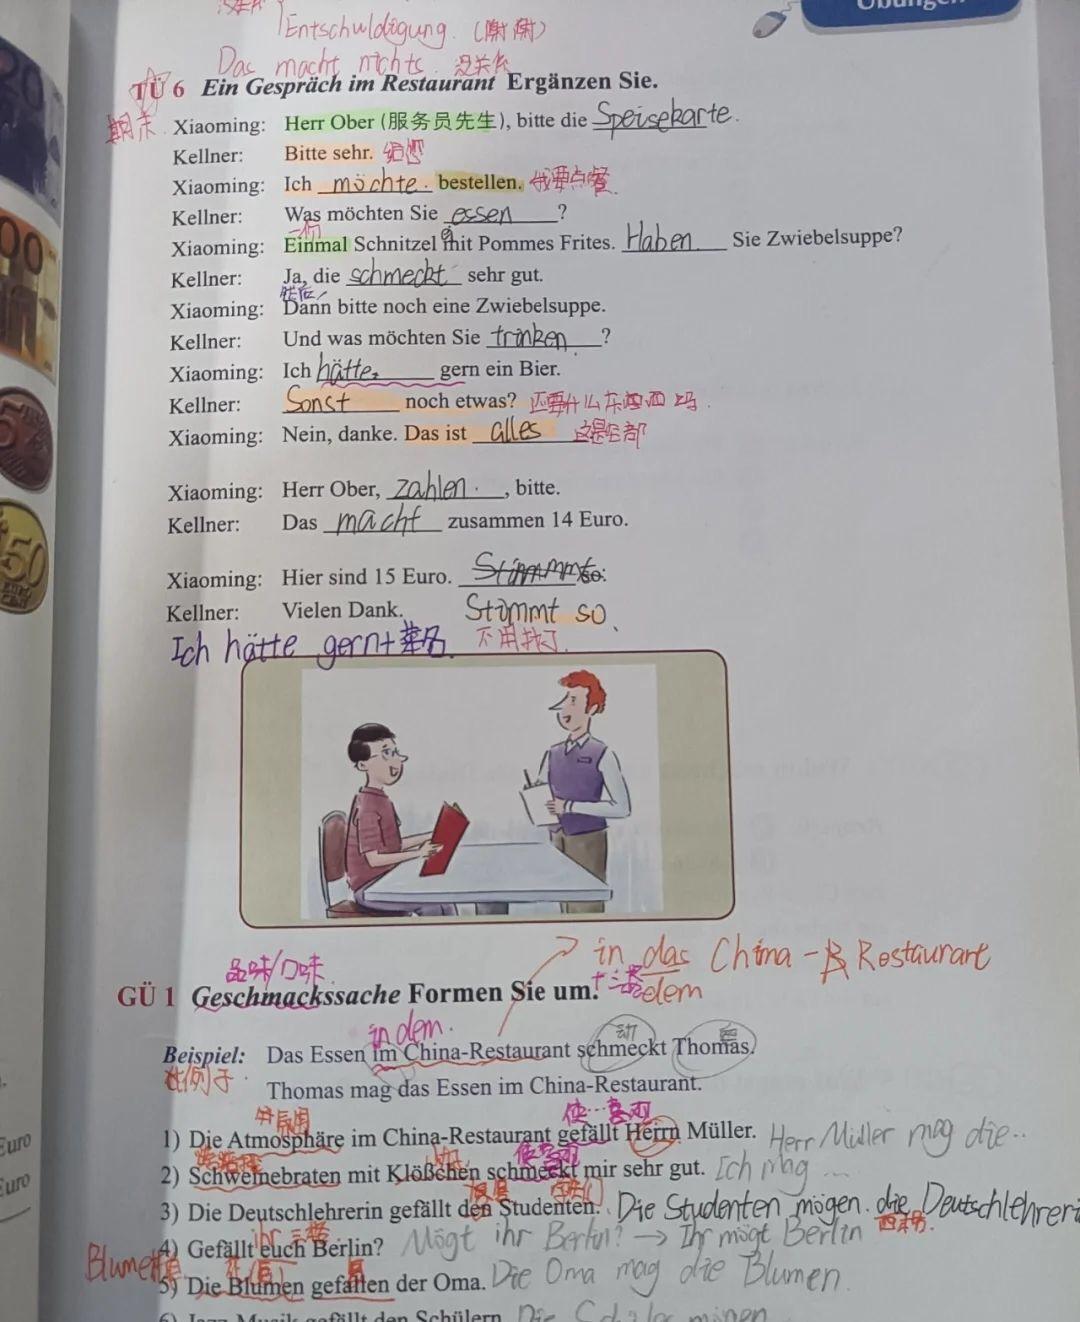 Übungen
Entschuldigung. (谢谢)
Das macht nichts. 没关系
TÜ 6 Ein Gespräch im Restaurant Ergänzen Sie.
期末
Xiaoming: Herr Ober (服务员先生), bitte die Speisekarte.
Kellner: Bitte sehr. 给您
Xiaoming: Ich möchte. bestellen. 我要点餐
Kellner: Was möchten Sie essen ?
一份
Xiaoming: Einmal Schnitzel mit Pommes Frites. Haben Sie Zwiebelsuppe?
Kellner: Ja, die schmeckt sehr gut.
然后
Xiaoming: Dann bitte noch eine Zwiebelsuppe.
Kellner: Und was möchten Sie trinken ?
Xiaoming: Ich hätte gern ein Bier.
Kellner: Sonst noch etwas? 还要什么东西吗
Xiaoming: Nein, danke. Das ist alles 这是全部
Xiaoming: Herr Ober, zahlen. , bitte.
Kellner: Das macht zusammen 14 Euro.
Xiaoming: Hier sind 15 Euro.
Kellner: Vielen Dank. Stimmt so
Ich hätte gern+菜名. 不用找了.
in das China - Restaurart
品味/口味
GÜ 1 Geschmackssache Formen Sie um. dem
in dem. 动
Beispiel: Das Essen im China-Restaurant schmeckt Thomas.
Thomas mag das Essen im China-Restaurant.
使…喜欢
1) Die Atmosphäre im China-Restaurant gefällt Herrn Müller. Herr Müller mag die..
2) Schweinebraten mit Klößchen schmeckt mir sehr gut. Ich mag ...
3) Die Deutschlehrerin gefällt den Studenten. Die Studenten mögen die Deutschlehreri
ihr
4) Gefällt euch Berlin? Mögt ihr Berlin? → Ihr mögt Berlin
5) Die Blumen gefallen der Oma. Die Oma mag die Blumen.
6) Jazz-Musik gefällt den Schülern
Euro
Euro
50